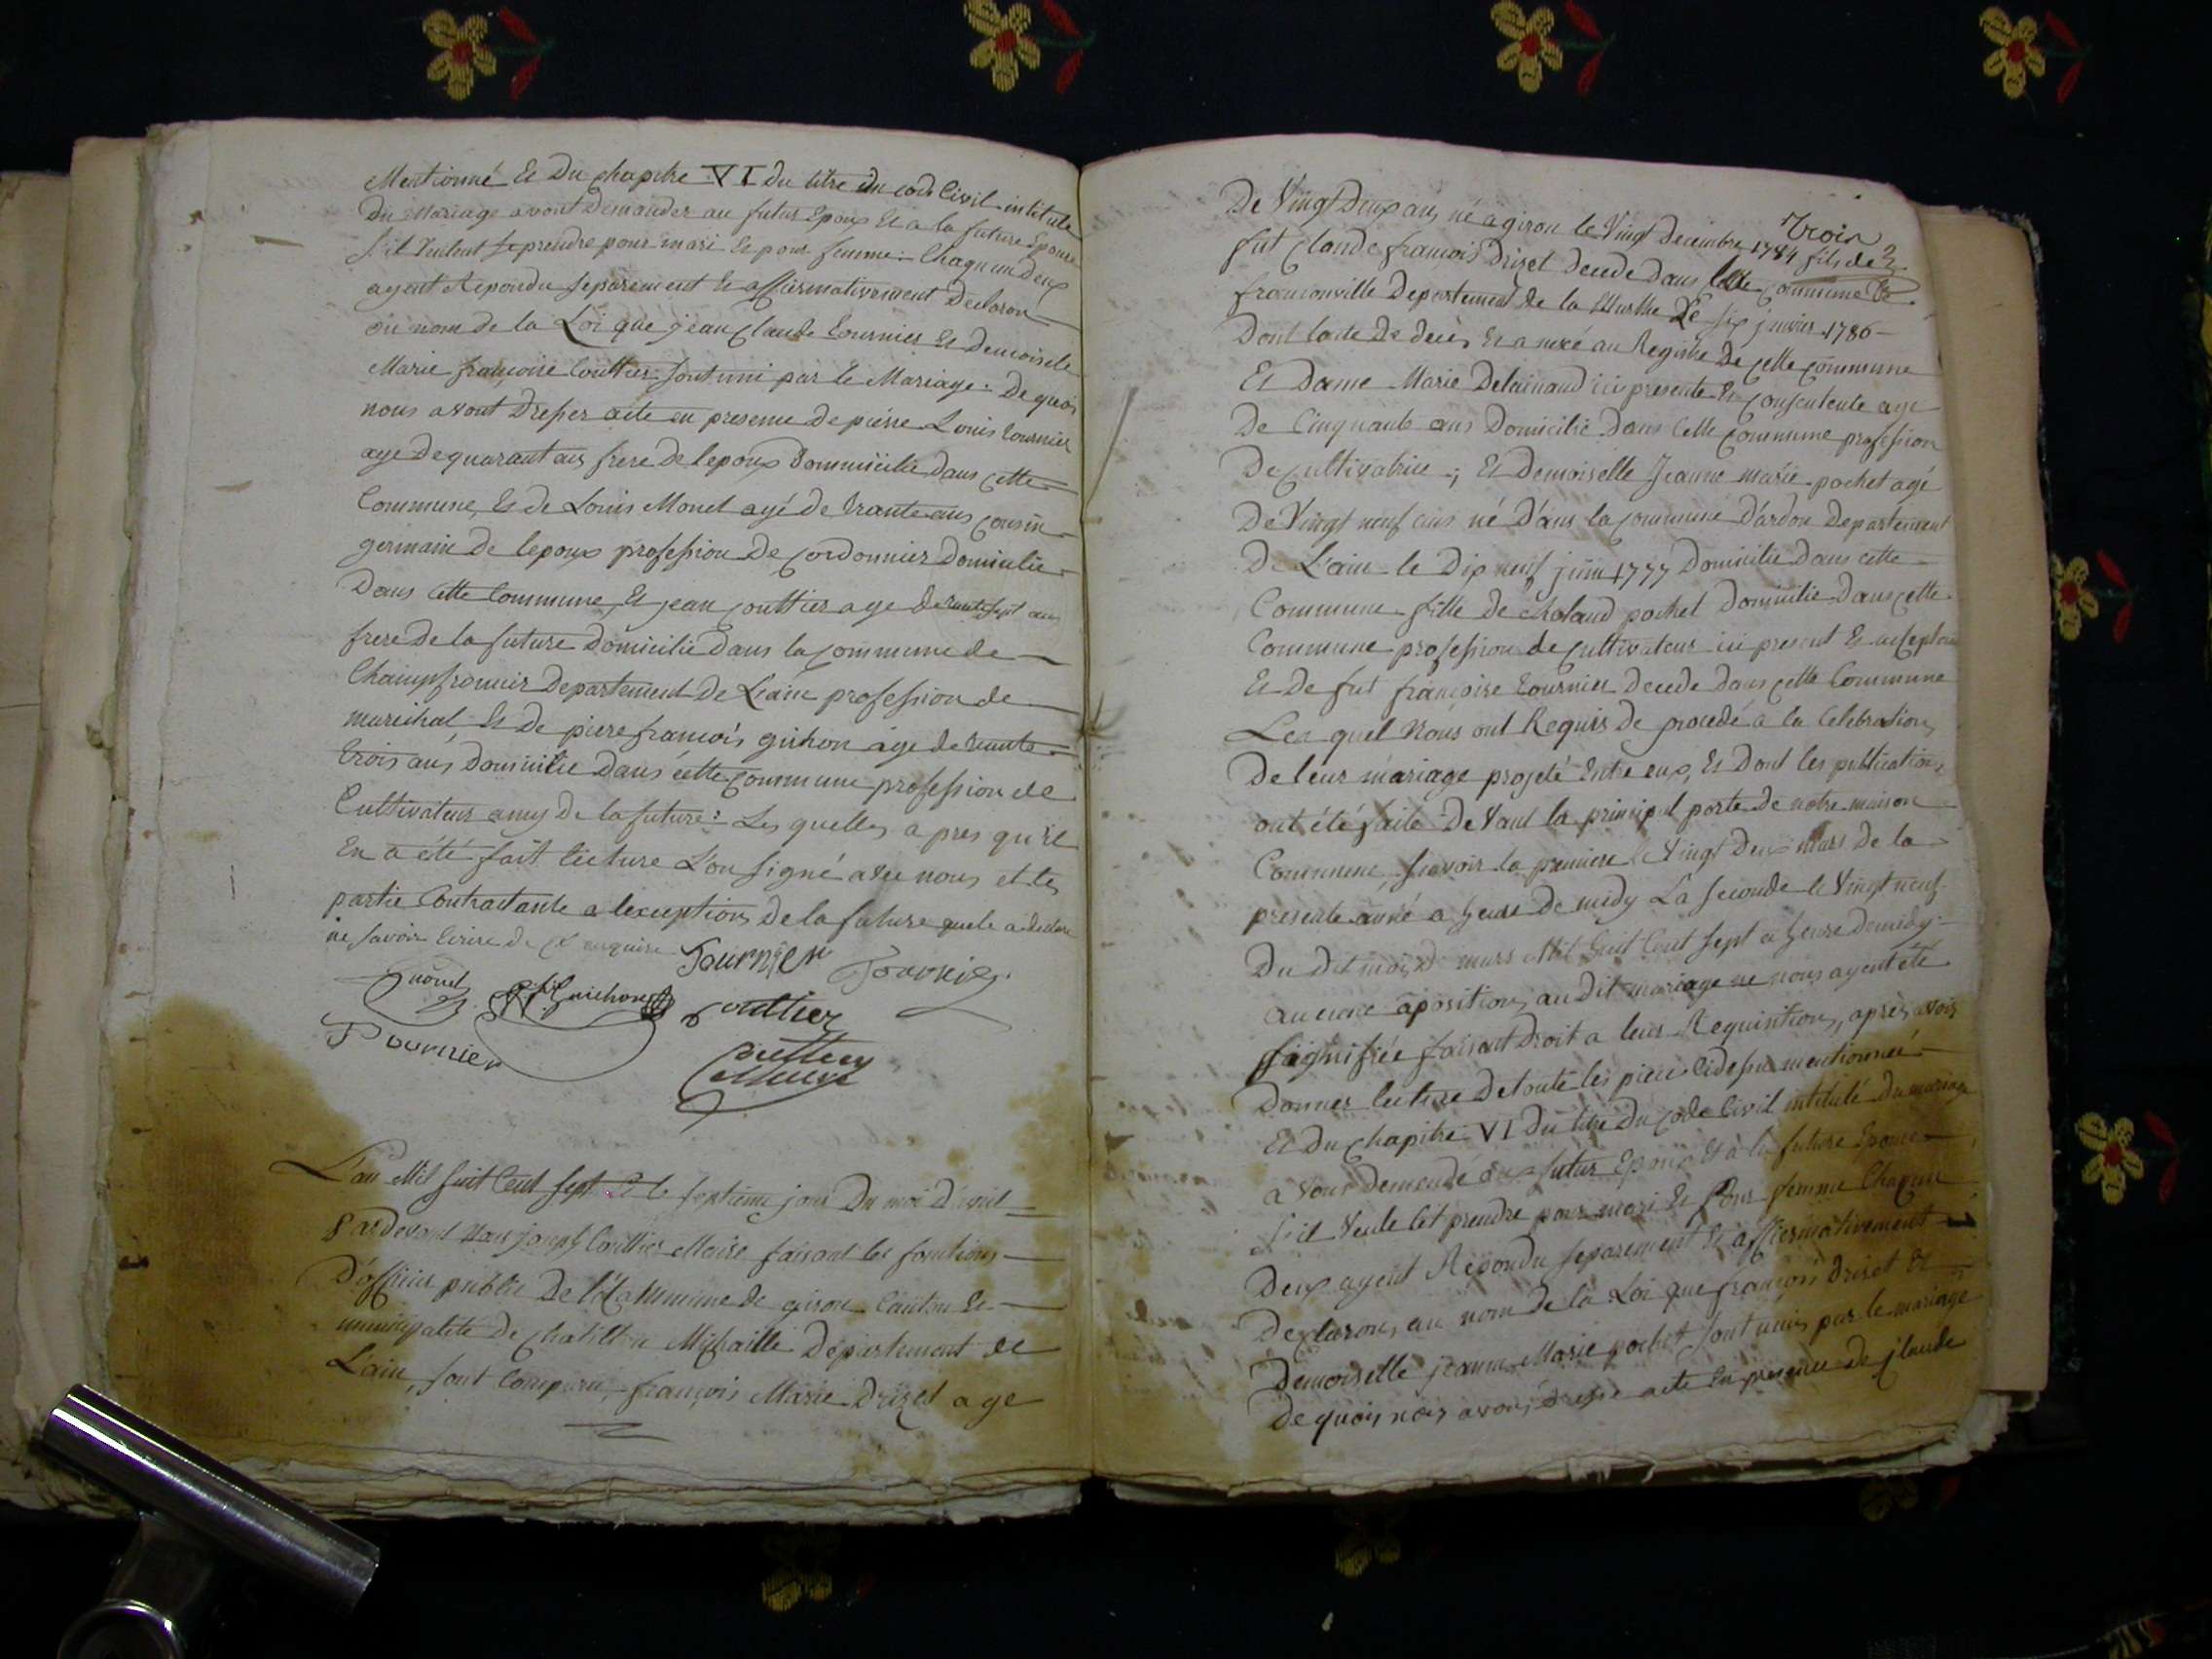 Mentionné Et Du chapitre VI du titre du code Civil intitulé
Du Mariage avont Demander au futur Epoux Et a la future Epouse
s'il Veulent se prendre pour mari Et pour femme : Chaqu'un Deux
ayent Repondu separement Et affirmativement Declaron
au nom de la Loi que jean Claude tournier Et Demoiselle
Marie françoise Couttier sont uni par le Mariage : De quoi
nous avont Dresser acte en presence De pierre Louis tournier
age de quarant ans frere De lepoux Dommicilie dans cette
Commune, Et de Louis Monet agé de trante ans cousin
germain De lepoux profession De cordonnier Domicilie
Dans Cette Commune, Et jean couttier age de trante sept ans
frere De la future Domicilie Dans la commune de
Champfromier Departement De Lain profession de
marichal, Et De piere francois guichon age de trante
trois ans Domicilie Dans cette commune profession de
Cultivateur amy De la future : Les quelles a pres qu'il
En a été fait lecture L'on signé avec nous et les
partie Contractante a lexception De la future quele a declare
ne savoir Ecrire de ce enquise
Tournier Tournier
Monet Guichon Couttier
Tournier
Couttier
Maire
L'an Mil huit Cent sept Et le septieme jour Du moi D'avril
Pardevant Nous joseph Couttier Maire faisant les fonctions
D'officier public De la Commune de giron Canton Et
municipalité De Chatillon Michaille Departement de
L'ain, sont Comparu, francois Marie Drizet age
trois
De Vingt Deux ans né a giron le Vingt Decembre 1784 fils de
fut Claude françois Drizet Decede Dans la Commune De
franconville Departement De la Murthe Le six janvier 1786
Dont lacte De decès Et anexé au Registre De cette commune
Et Dame Marie Delainaud ici presente Et consentente age
De Cinquante ans Domicilié Dans Cette Commune profession
De Cultivatrice ; Et Demoiselle Jeanne Marie pochet agé
De Vingt neuf ans né D'ans la commune D'ardon Departement
De L'ain le Dix neuf juin 1777 Domicilie Dans cette
Commune fille de pochet Domicilie Dans cette
Commune profession de Cultivateur ici present Et
Et De fut françoise tournier Decede dans cette Commune
Les quel Nous ont Requis de procedé a la Celebration
De leur mariage projeté Entre eux, Et Dont les publications
ont été faite De Vant la principal porte De notre maison
Commune, savoir la premiere le Vingt Deux Mars De la
presente anné a heure De midy La seconde le Vingt neuf
Du Dit mois De mars Mil huit Cent sept a heure De midy
aucune aposition au Dit mariage ne nous ayent été
signifiée faisant Droit a leur Requisition, après avoir
Donner lecture De toute les piece Cidessu mentionnée
Et Du Chapitre VI Du titre Du Code Civil intitulé Du mariage
a Vont Demandé au futur Epoux Et a la future Epouse
s'il Veule Cet prendre pour mari Et Pour femme Chaqun
Deux ayent Repondu separement Et affiermativement
Declarons au nom de la Loi que francois Drizet Et
Demoiselle jeanne Marie pochet sont unis par le mariage
De quoi nous avons Dresse acte En presence De Claude